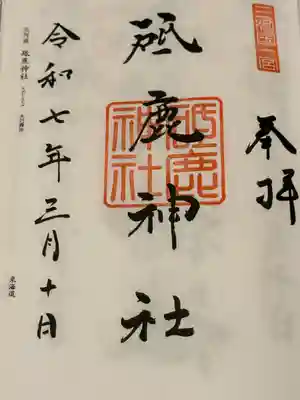 三河國一宮
奉拝
砥鹿神社
砥鹿神社
令和七年三月十日
三河國 砥鹿神社
東海道